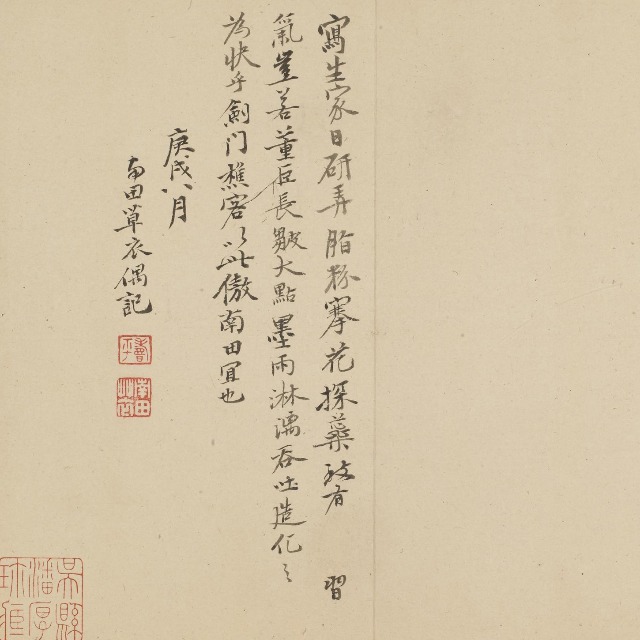 寫生家日研弄脂粉搴花探蘂致有 習
氣豈若董巨長皴大點墨雨淋濡吞吐造化之
為快乎劍门樵客以此傲南田宜也
庚戌八月
南田草衣偶記
壽平
南田
吳縣潘厚